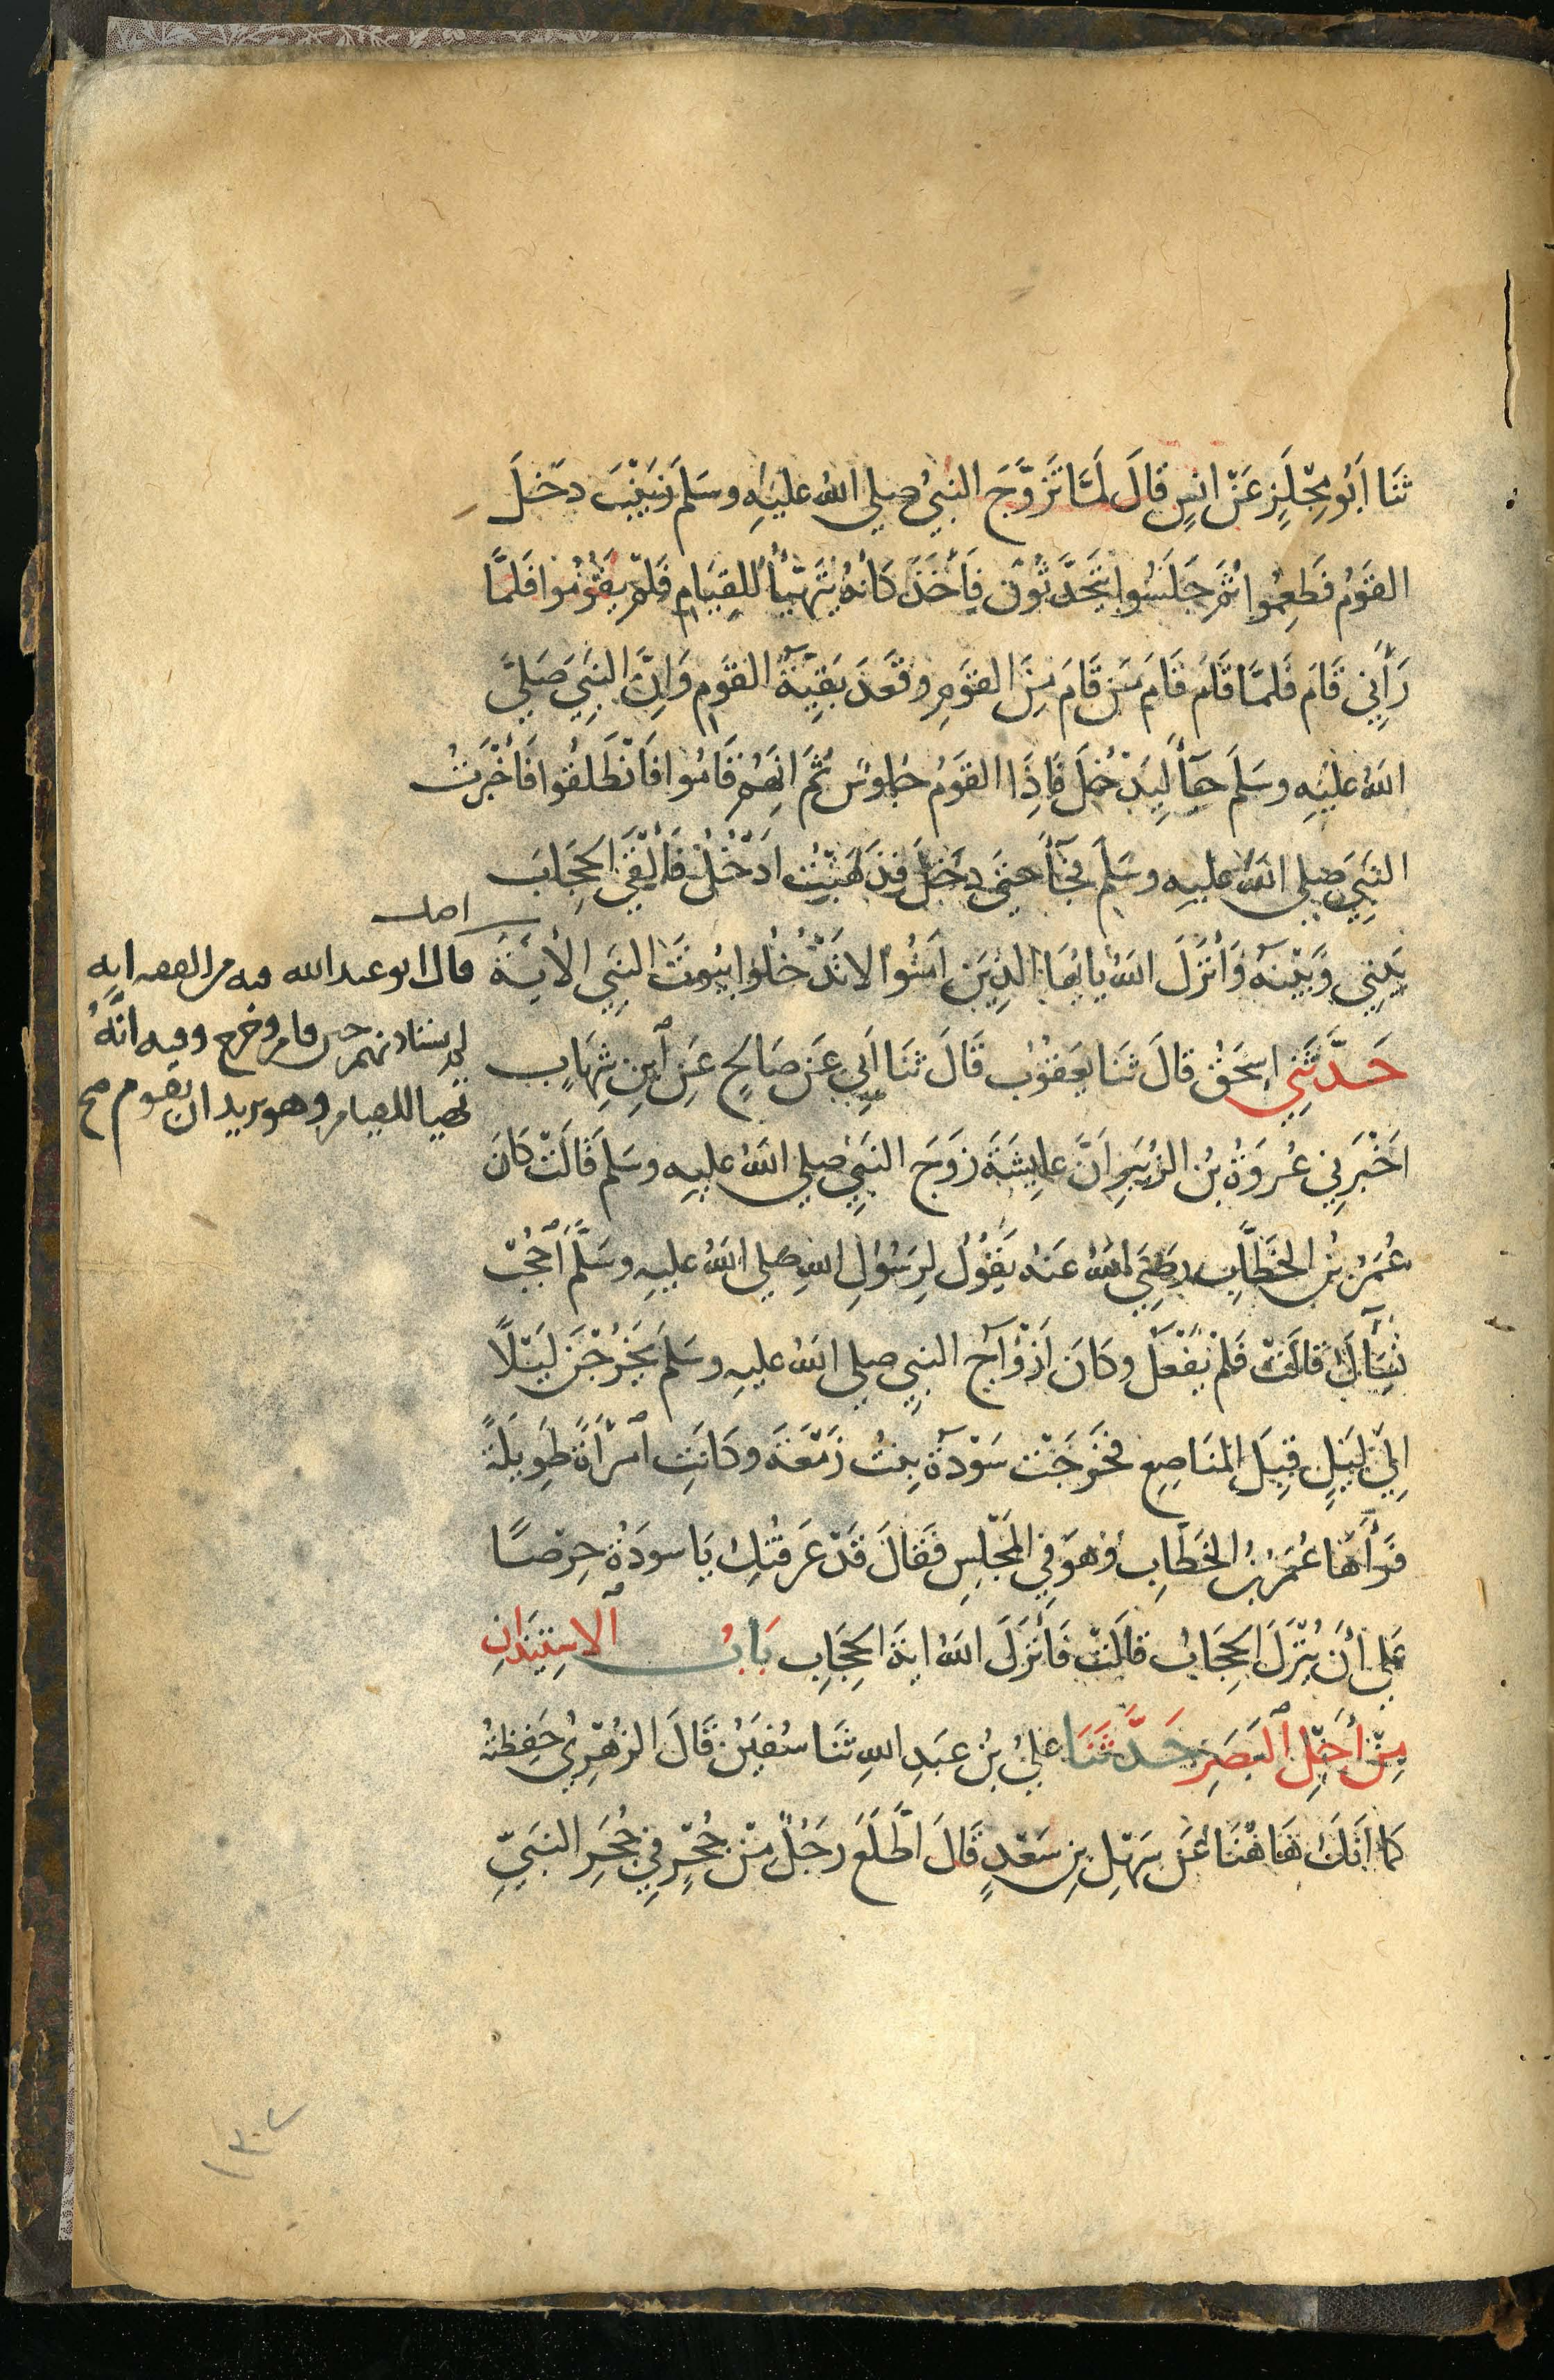 ثَنَا أَبُو مِجْلَزٍ عَنْ انسٍ قَالَ لَمَّا تَزَوَّجَ النبيُ صلى اللهُ عليهِ وسَلمَ زَيْنَبَ دَخَلَ
القَوْمُ فَطَعِمُوا ثُمَّ جَلَسُوا يَتَحَدَّثُونَ فَأَخَذَ كَأَنهُ يَتَهَيَّأُ لِلقِيَامِ فَلَمْ يَقُومُوا فَلَمَّا
رَأَى ذٰلك قَامَ فَلَمَّا قَامَ قَامَ مَن قَامَ مِنَ القَوْمِ وقَعَدَ بَقِيَّةُ القَوْمِ وَانَّ النَّبِيَ صَلى
اللهُ عليْهِ وسَلمَ جآءَ لِيَدْخُلَ فَاِذَا القَوْمُ جُلوسٌ ثُمَّ انهُمْ قَامُوا فَانْطَلَقُوا فَأَخْبَرْتُ
النَّبِيَ صلى اللهُ عليهِ وسَلمَ فجَآءَ حَتى دَخَلَ فَذَهَبْتُ ادْخُلُ فَأَلْقَى الحِجَابَ
بَيْنِي وَبَيْنَهُ وَأَنْزَلَ اللهُ يا ايُهَا الذِينَ امَنُوا لا تَدْخُلُوا بيُوتَ النبِي الأيَةَ
اصل
قال ابو عبد الله فيه من الفقه انه
لم يستاذنهم حين قام وخرج وفيه أنَّهُ
تهيا للقيام وهو يريد ان يقوموا صح
حَدَّثَنِي اسحَقُ قَالَ ثَنَا يَعقُوبُ قَالَ ثَنَا ابِي عَن صَالِحٍ عَنِ ابْنِ شِهَابٍ
اخْبَرَنِي عُروَةُ بْنُ الزُبَيرِ أَنَّ عايِشَةَ زَوجَ النَبِيِ صلى اللهُ عليهِ وسَلمَ قَالَتْ كَانَ
عُمَرُ بْنُ الخَطَّابِ رضِيَ اللهُ عَنهُ يَقُولُ لِرَسُولِ اللهِ صلى اللهُ عليهِ وسَلَّمَ احْجُبْ
نِسَآءَكَ قَالَتْ فَلَمْ يَفْعَلْ وكَانَ ازْوَاجُ النبِي صلى اللهُ عليهِ وسَلمَ يَخْرُجْنَ لَيْلًا
اِلى لَيْلٍ قِبَلَ المَنَاصِعِ فخَرَجَتْ سَوْدَةُ بِنتُ زَمْعَةَ وكَانَتِ امْرَأَةً طَوِيلَةً
فَرَأَهَا عُمَرُ بْنُ الخَطّابِ وهُوَ فِي المَجْلِسِ فَقَالَ قَدْ عَرَفتُكِ يَا سودَةُ حِرصًا
عَلى أَنْ يُنْزَلَ الحِجَابُ قَالَتْ فَأَنْزَلَ اللهُ ايَةَ الحِجَابِ بَابُ الاسْتِيذَانِ
مِنْ أَجْلِ الْبَصَرِ حَدَّثَنَا عَلىُ بْنُ عَبدِ اللهِ ثَنَا سُفيَنُ قَالَ الزُهْرِيُ حَفِظتُهُ
كَمَا انَّكَ هَاهُنَا عَن سَهْلِ بنِ سَعْدٍ قَالَ اطَّلَعَ رَجُلٌ مِنْ جُحْرٍ فِي حُجَرِ النَبيِّ
١٣٠٧